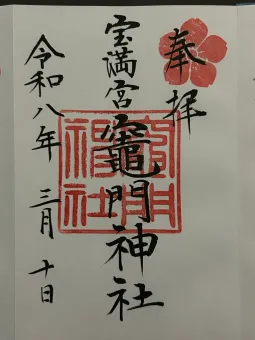 奉拝
宝満宮竈門神社
令和八年 三月 十日
竈門神社